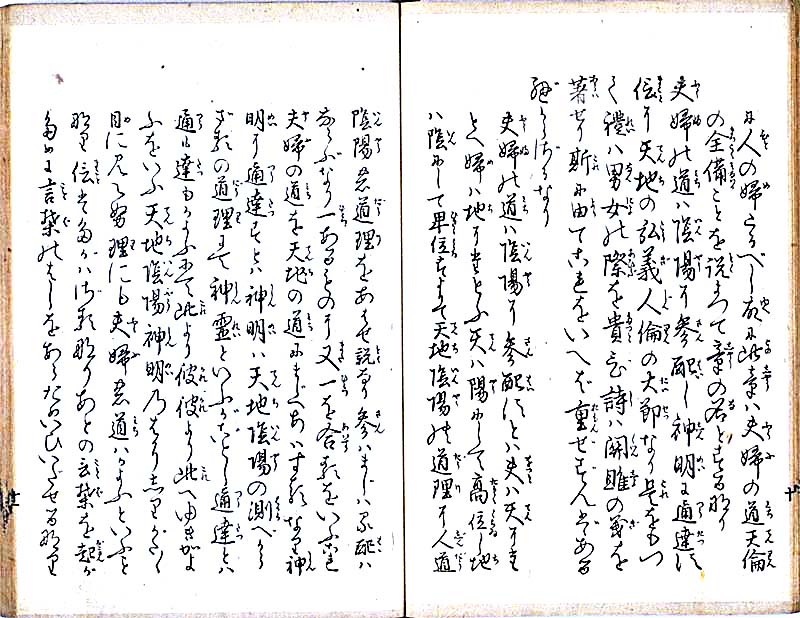 人の婦たるべし故に此章ハ夫婦の道天倫
の全備ことを説よつて章の名とするなり
夫婦の道ハ陰陽に参配し神明に通達す
信に天地の弘義人倫の大節なり是をもつ
て禮ハ男女の際を貴び詩ハ関雎の義を
著せり斯に由てこれをいへば重せずんバあるべ
からざるなり
夫婦の道ハ陰陽に参配すとハ夫ハ天にたと
へ婦ハ地にたとふ天ハ陽にして高位し地
ハ陰にして卑位すよて天地陰陽の道理に人道
陰陽の道理をあハせ説なり参ハまじハる配ハ
ならぶなり一あるものに又一を合するをいふこれ
夫婦の道を天地の道にならべあハするなり神
明に通達すとハ神明ハ天地陰陽の測べから
ざるの道理にて神霊といふがごとし通達とハ
通も達もかよふにて此より彼彼より此へゆきかよ
ふをいふ天地陰陽神明乃はかりしりがたく
目に見る理にも夫婦の道ハかよふといふと
なり信にとハあとの言葉を起す
ために言葉のはしをあらためいひいだせるなり